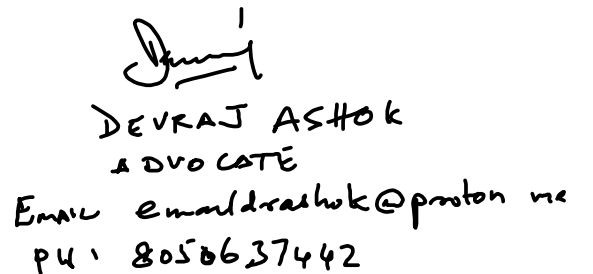 DEVRAJ ASHOK
ADVOCATE
EMAIL emaildrashok@proton me
PH: 8050637442